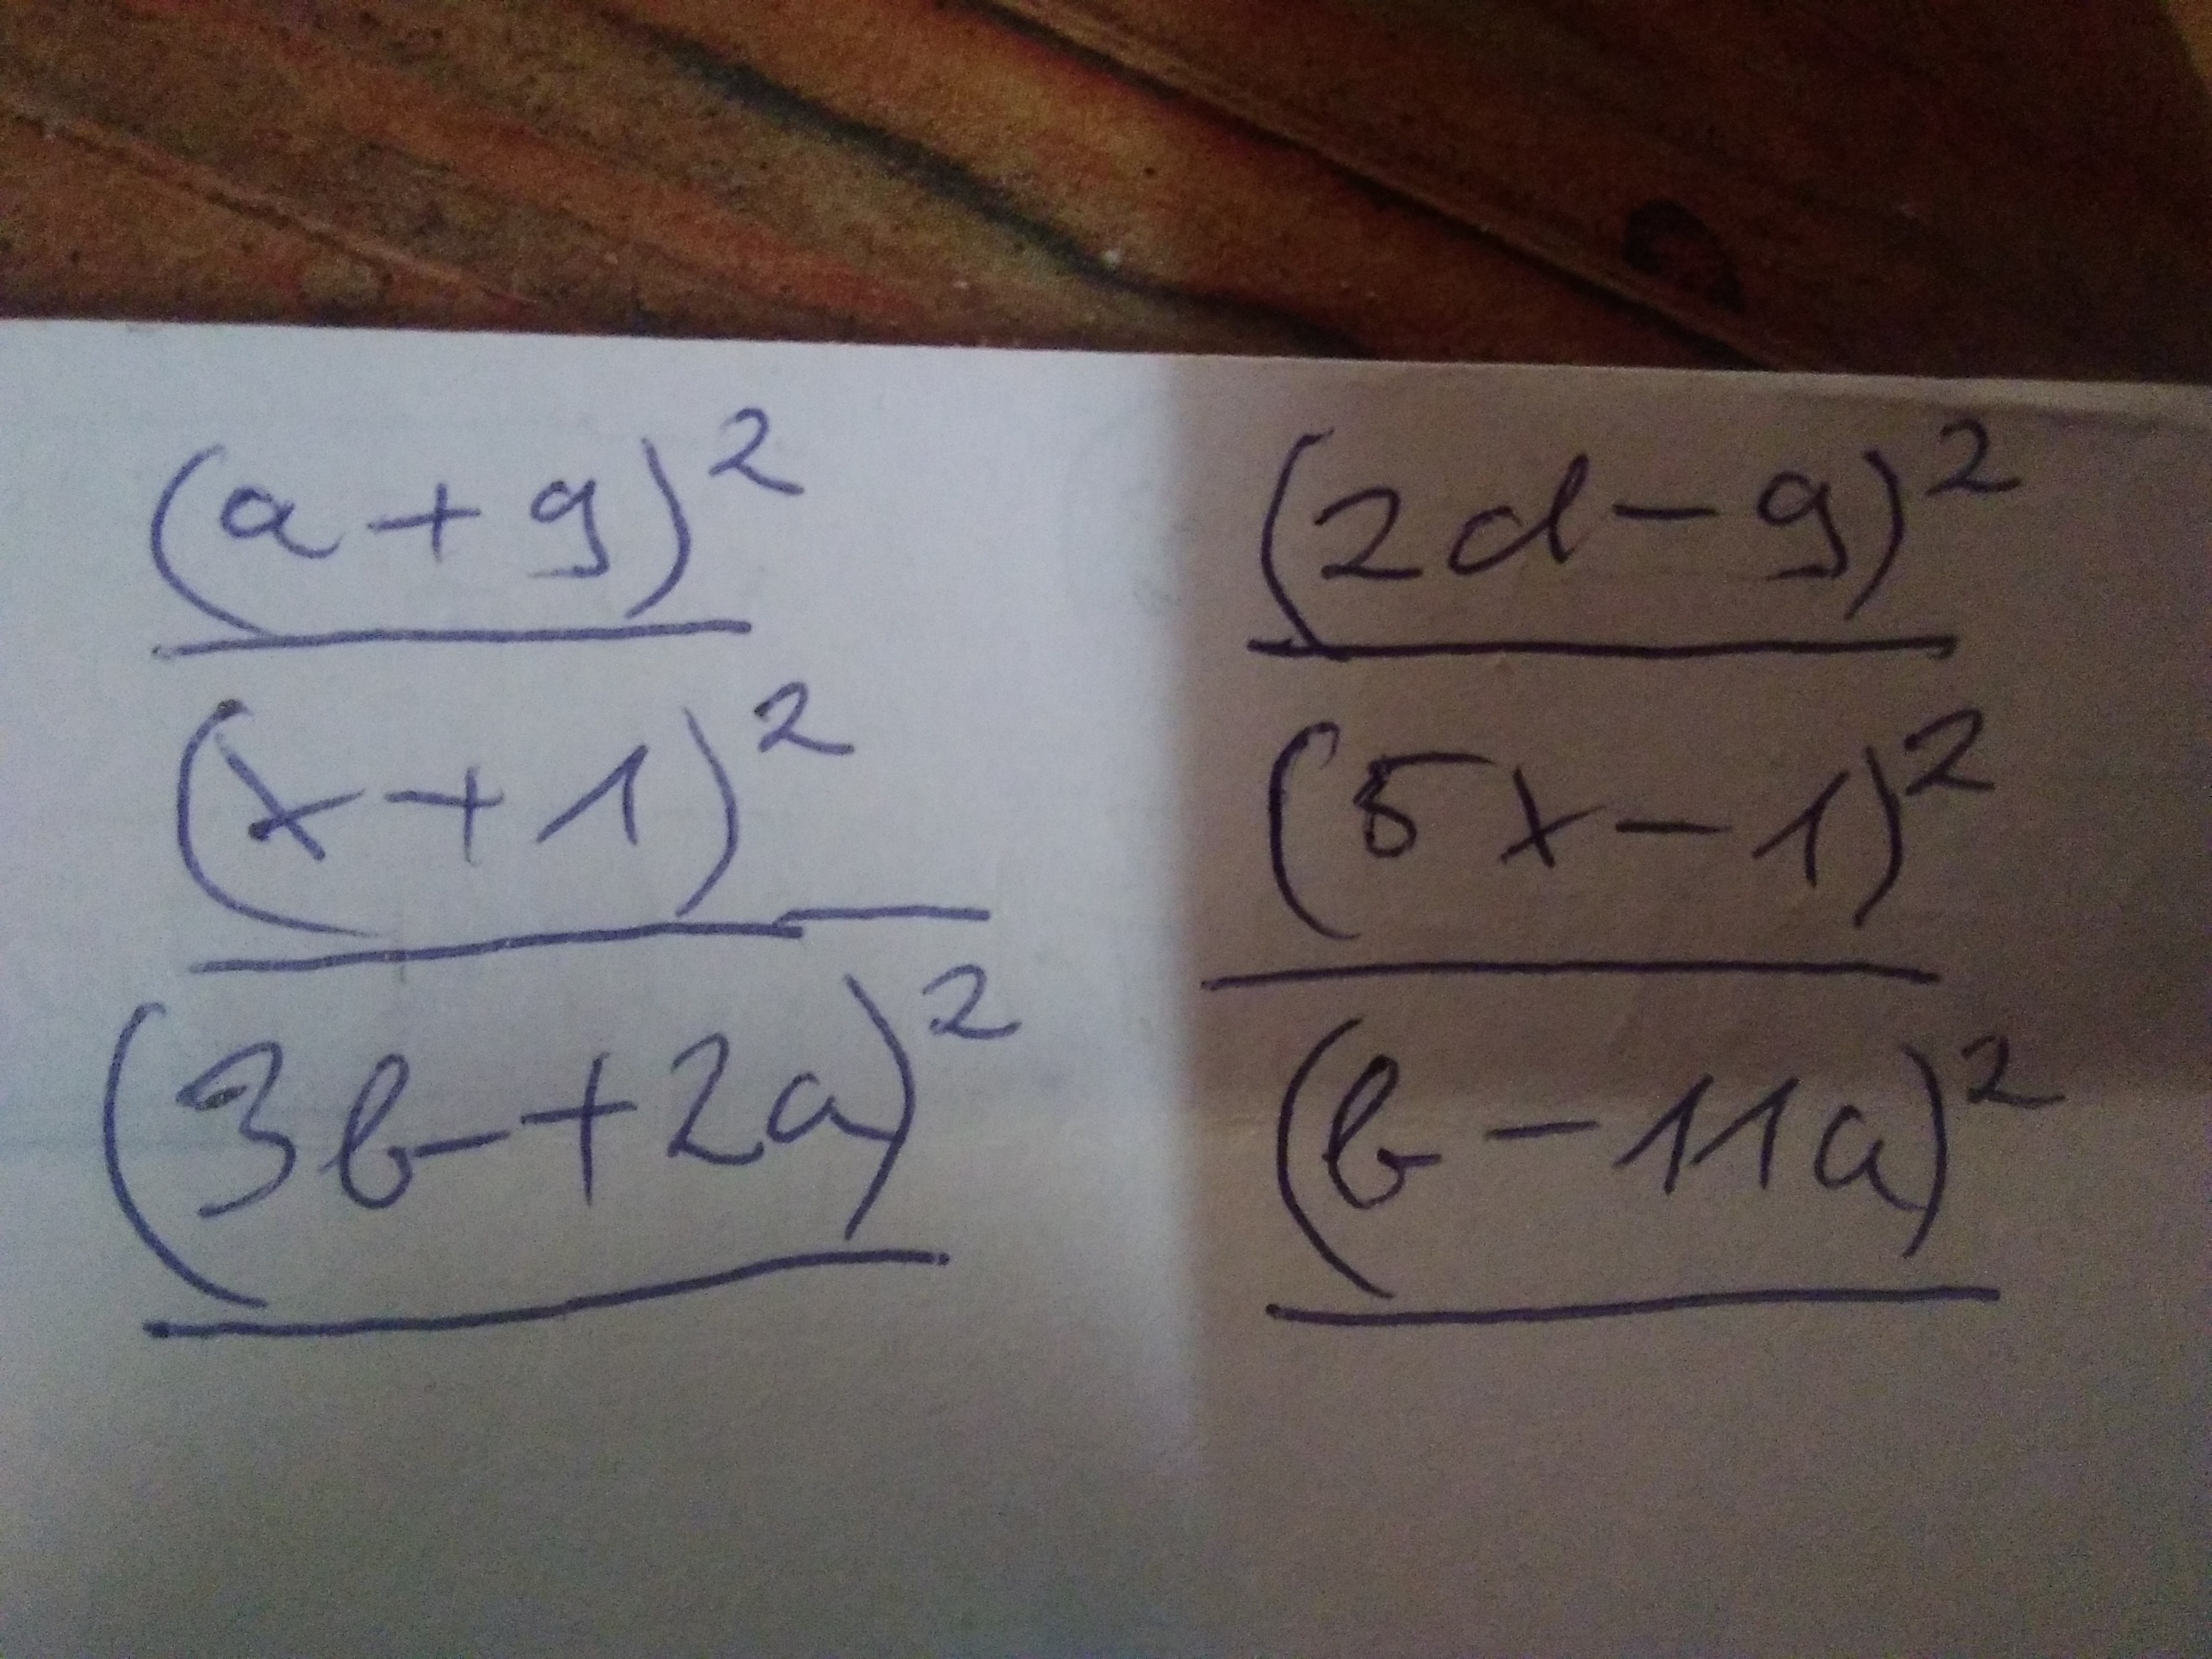 (a+9)²
(2d-9)²
(x+1)²
(5x-1)²
(3b+2a)²
(b-11a)²